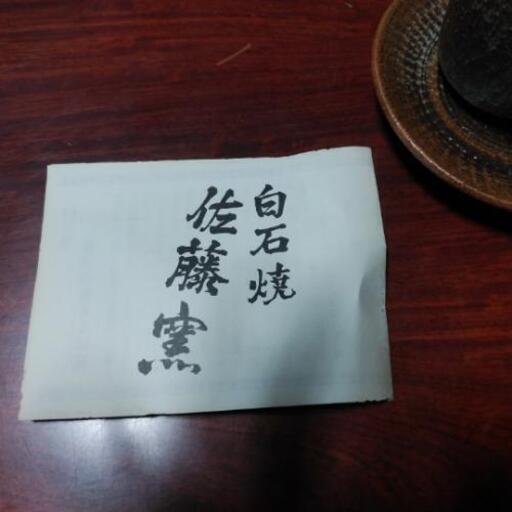 白石焼
佐藤窯